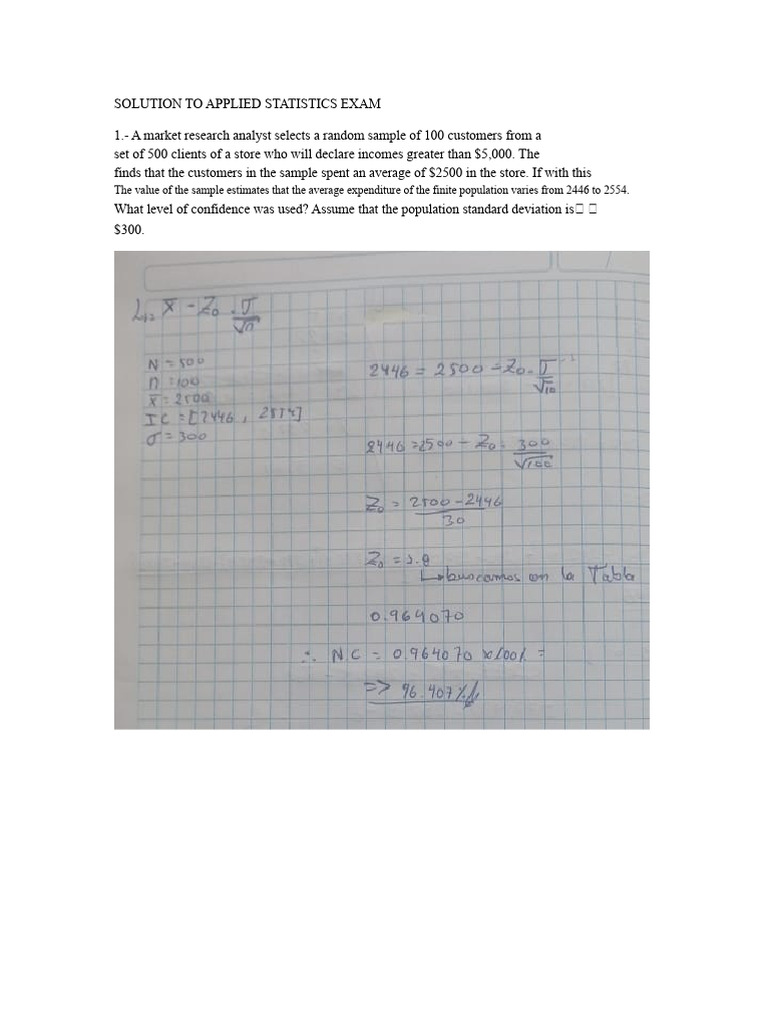 SOLUTION TO APPLIED STATISTICS EXAM
1.- A market research analyst selects a random sample of 100 customers from a
set of 500 clients of a store who will declare incomes greater than $5,000. The
finds that the customers in the sample spent an average of $2500 in the store. If with this
The value of the sample estimates that the average expenditure of the finite population varies from 2446 to 2554.
What level of confidence was used? Assume that the population standard deviation is
$300.
x̄ - Z₀ . σ/√n
N = 500
n = 100
x̄ = 2500
IC = [2446, 2554]
σ = 300
2446 = 2500 - Z₀ . σ/√10
2446 = 2500 - Z₀ . 300/√100
Z₀ = 2500-2446/30
Z₀ = 1.8
↳ buscamos en la Tabla
0.964070
∴ NC = 0.964070 x 100% =
=> 96.407%